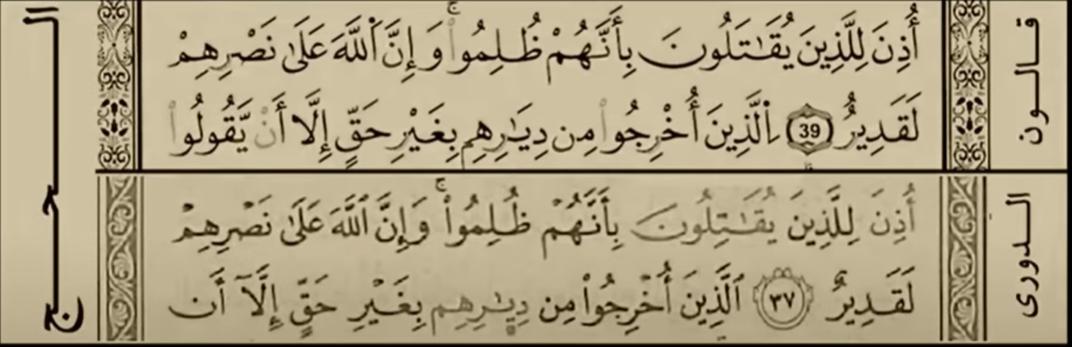 الحج
قالون
أُذِنَ لِلَّذِينَ يُقَٰتَلُونَ بِأَنَّهُمْ ظُلِمُواْۚ وَإِنَّ اَ۬للَّهَ عَلَىٰ نَصْرِهِمْ
لَقَدِيرٌ 39 اِ۬لَّذِينَ أُخْرِجُواْ مِن دِيَٰرِهِم بِغَيْرِ حَقٍّ إِلَّا أَنْ يَّقُولُواْ
الدورى
أُذِنَ لِلَّذِينَ يُقَٰتِلُونَ بِأَنَّهُمْ ظُلِمُواْۚ وَإِنَّ ٱللَّهَ عَلَىٰ نَصْرِهِمْ
لَقَدِيرٌ ٣٧ ٱلَّذِينَ أُخْرِجُواْ مِن دِيَٰرِهِم بِغَيْرِ حَقٍّ إِلَّآ أَن